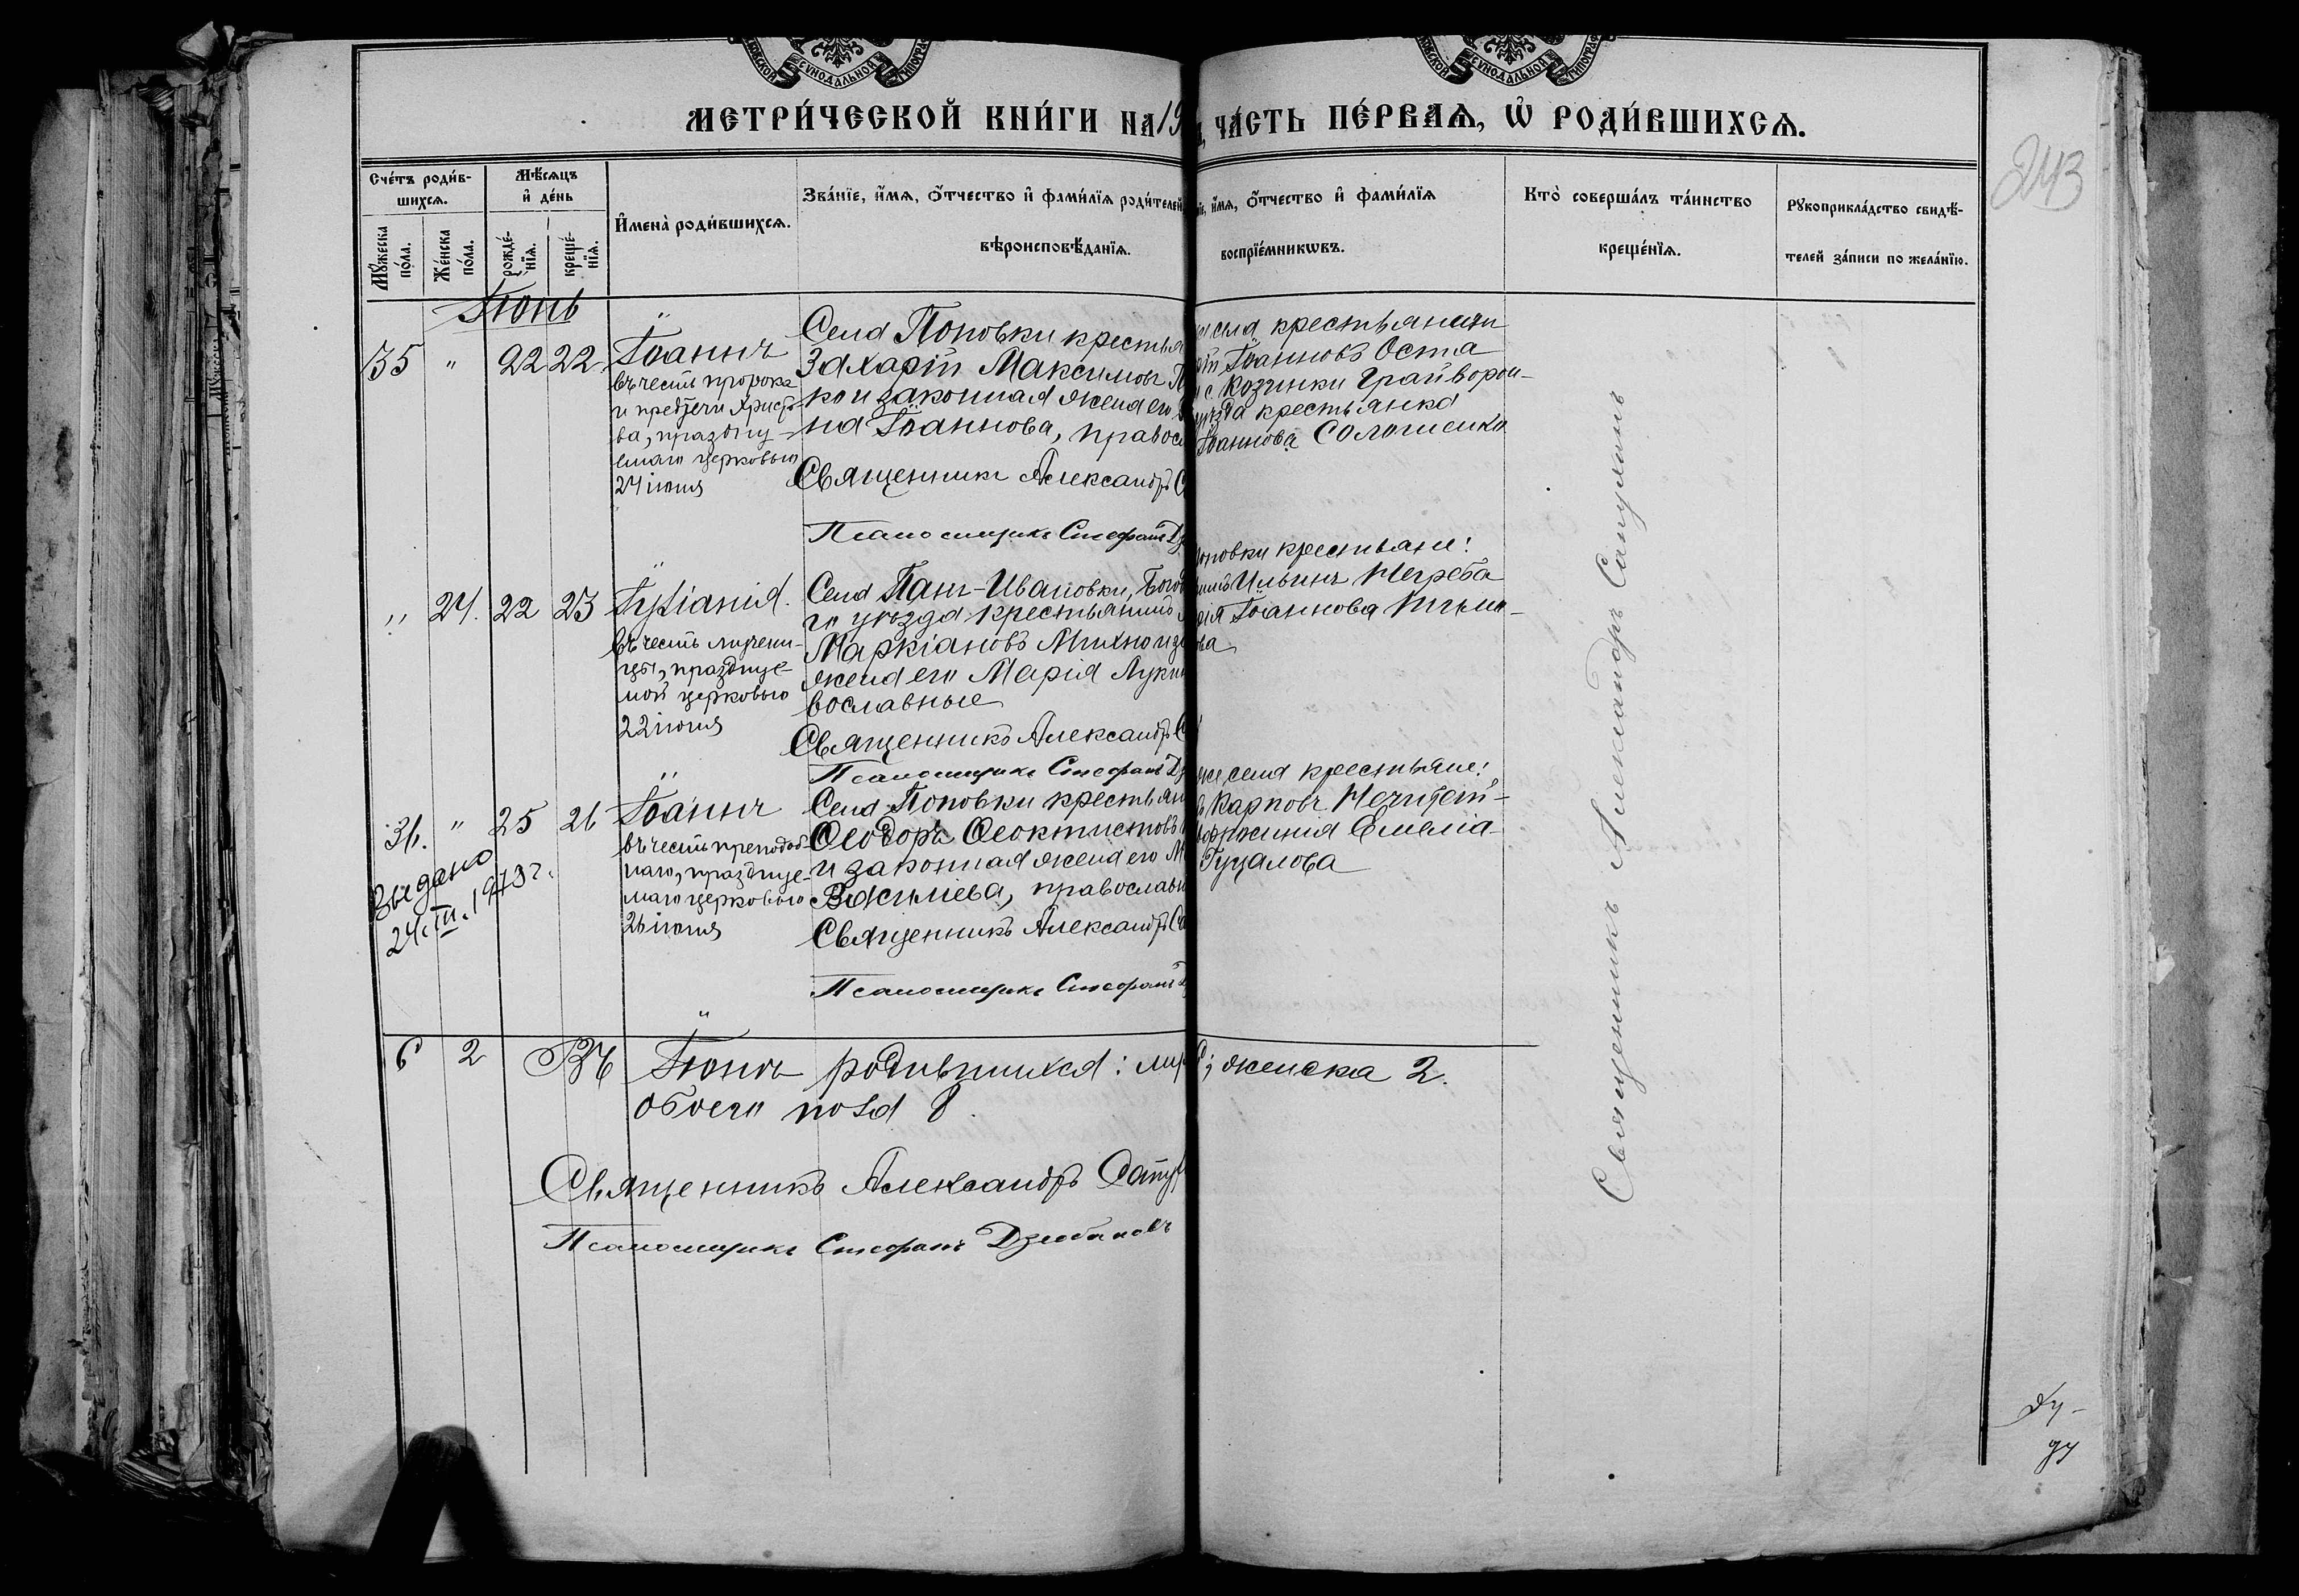 МЕТРИ́ЧЕСКОЙ КНИ́ГИ НА 19 ЧА́СТЬ ПЕ́РВАѦ, Ѡ҆ РОДИ́ВШИХСѦ.
243
Сче́тъ роди́в-
шихсѧ.
Мꙋ́жеска по́ла.
Же́нска по́ла.
Мѣ́сѧцъ и҆ де́нь
рожде́-нїѧ.
креще́-нїѧ.
И҆мена̀ роди́вшихсѧ.
Зва́нїе, и҆́мѧ, ѻ҆́тчество и҆ фами́лїѧ роди́телей
вѣроисповѣ́данїѧ.
и҆́мѧ, ѻ҆́тчество и҆ фами́лїѧ
воспрїе́мникѡвъ.
Кто̀ соверша́лъ та́инство
креще́нїѧ.
Рꙋкоприкла́дство свидѣ́-
телей за́писи по жела́нїю.
Іюнь
35 " 22 22 Іоаннъ
въ честь пророка
и предтечи Христо-
ва, праздну-
емаго церковью
24 іюня
Села Поповки крестья
Захарій Максимовъ
ко и законная жена его
на Іоаннова, правос
Священникъ Александръ С
Псаломщикъ Стефанъ Дз
села крестьянинъ
Іоанновъ Оста
с. Козинки Грайворон-
уѣзда крестьянка
Іоаннова Солошенко
" 24. 22 23 Іуліанія.
въ честь мучени-
цы, празднуе-
мой церковью
22 іюня
Села Пань-Ивановки, Богод
го уѣзда крестьянинъ
Маркіановъ Михно и з
жена его Марія Луки
вославные
Священникъ Александръ С
Псаломщикъ Стефанъ Дз
оповки крестьяне:
Ильинъ Негреба
Іоаннова Письме-
ва
36. " 25 26 Іоаннъ
въ честь преподоб-
наго, празднуе-
маго церковью
26 іюня
Выдано
24. III. 1973 г.
Села Поповки крестьян
Ѳеодоръ Ѳеоктистовъ
и законная жена его М
Васильева, православн
Священникъ Александръ Са
Псаломщикъ Стефанъ Д
села крестьяне:
Карповъ Нечитай-
фросинія Емеліа-
Гуцалова
Священникъ Александръ Сапухинъ
6 2 Въ Іюнѣ родившихся: муж 6; женска 2.
обоего пола 8.
Священникъ Александръ Сапух
Псаломщикъ Стефанъ Дзюбановъ